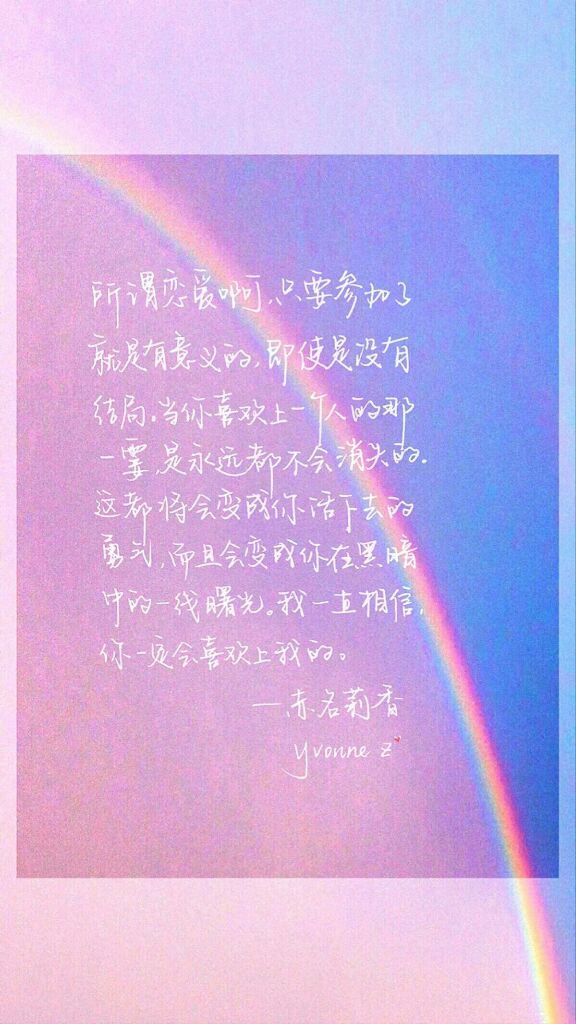 所谓恋爱啊,只要参加了
就是有意义的,即使是没有
结局。当你喜欢上一个人的那
一霎,是永远都不会消失的.
这都将会变成你活下去的
勇气,而且会变成你在黑暗
中的一线曙光。我一直相信,
你一定会喜欢上我的。
—赤名莉香
yvonne z